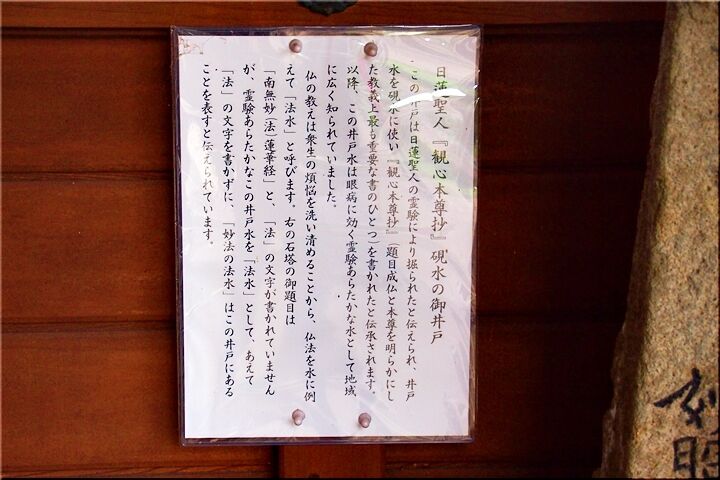 日蓮聖人『観心本尊抄』硯水の御井戸
この井戸は日蓮聖人の霊験により掘られたと伝えられ、井戸
水を硯水に使い『観心本尊抄』(題目成仏と本尊を明らかにし
た教義上最も重要な書のひとつ)を書かれたと伝承されます。
以降、この井戸水は眼病に効く霊験あらたかな水として地域
に広く知られていました。
仏の教えは衆生の煩悩を洗い清めることから、仏法を水に例
えて「法水」と呼びます。右の石塔の御題目は
「南無妙(法)蓮華経」と、「法」の文字が書かれていません
が、霊験あらたかなこの井戸水を「法水」として、あえて
「法」の文字を書かずに、「妙法の法水」はこの井戸にある
ことを表すと伝えられています。